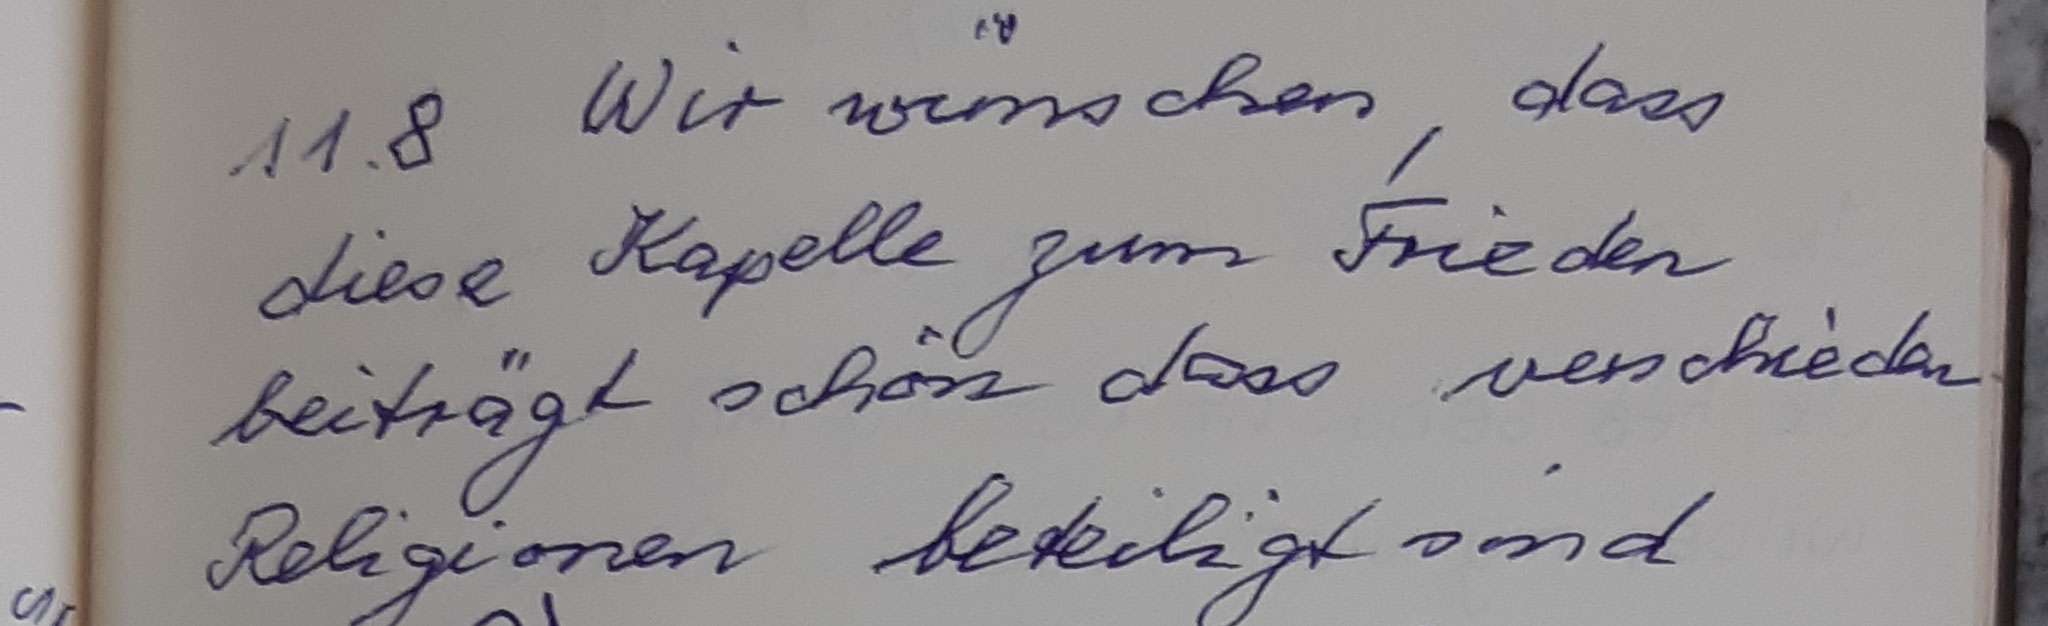 11.8 Wir wünschen, dass
diese Kapelle zum Frieden
beiträgt schön dass verschieden
Religionen beteiligt sind